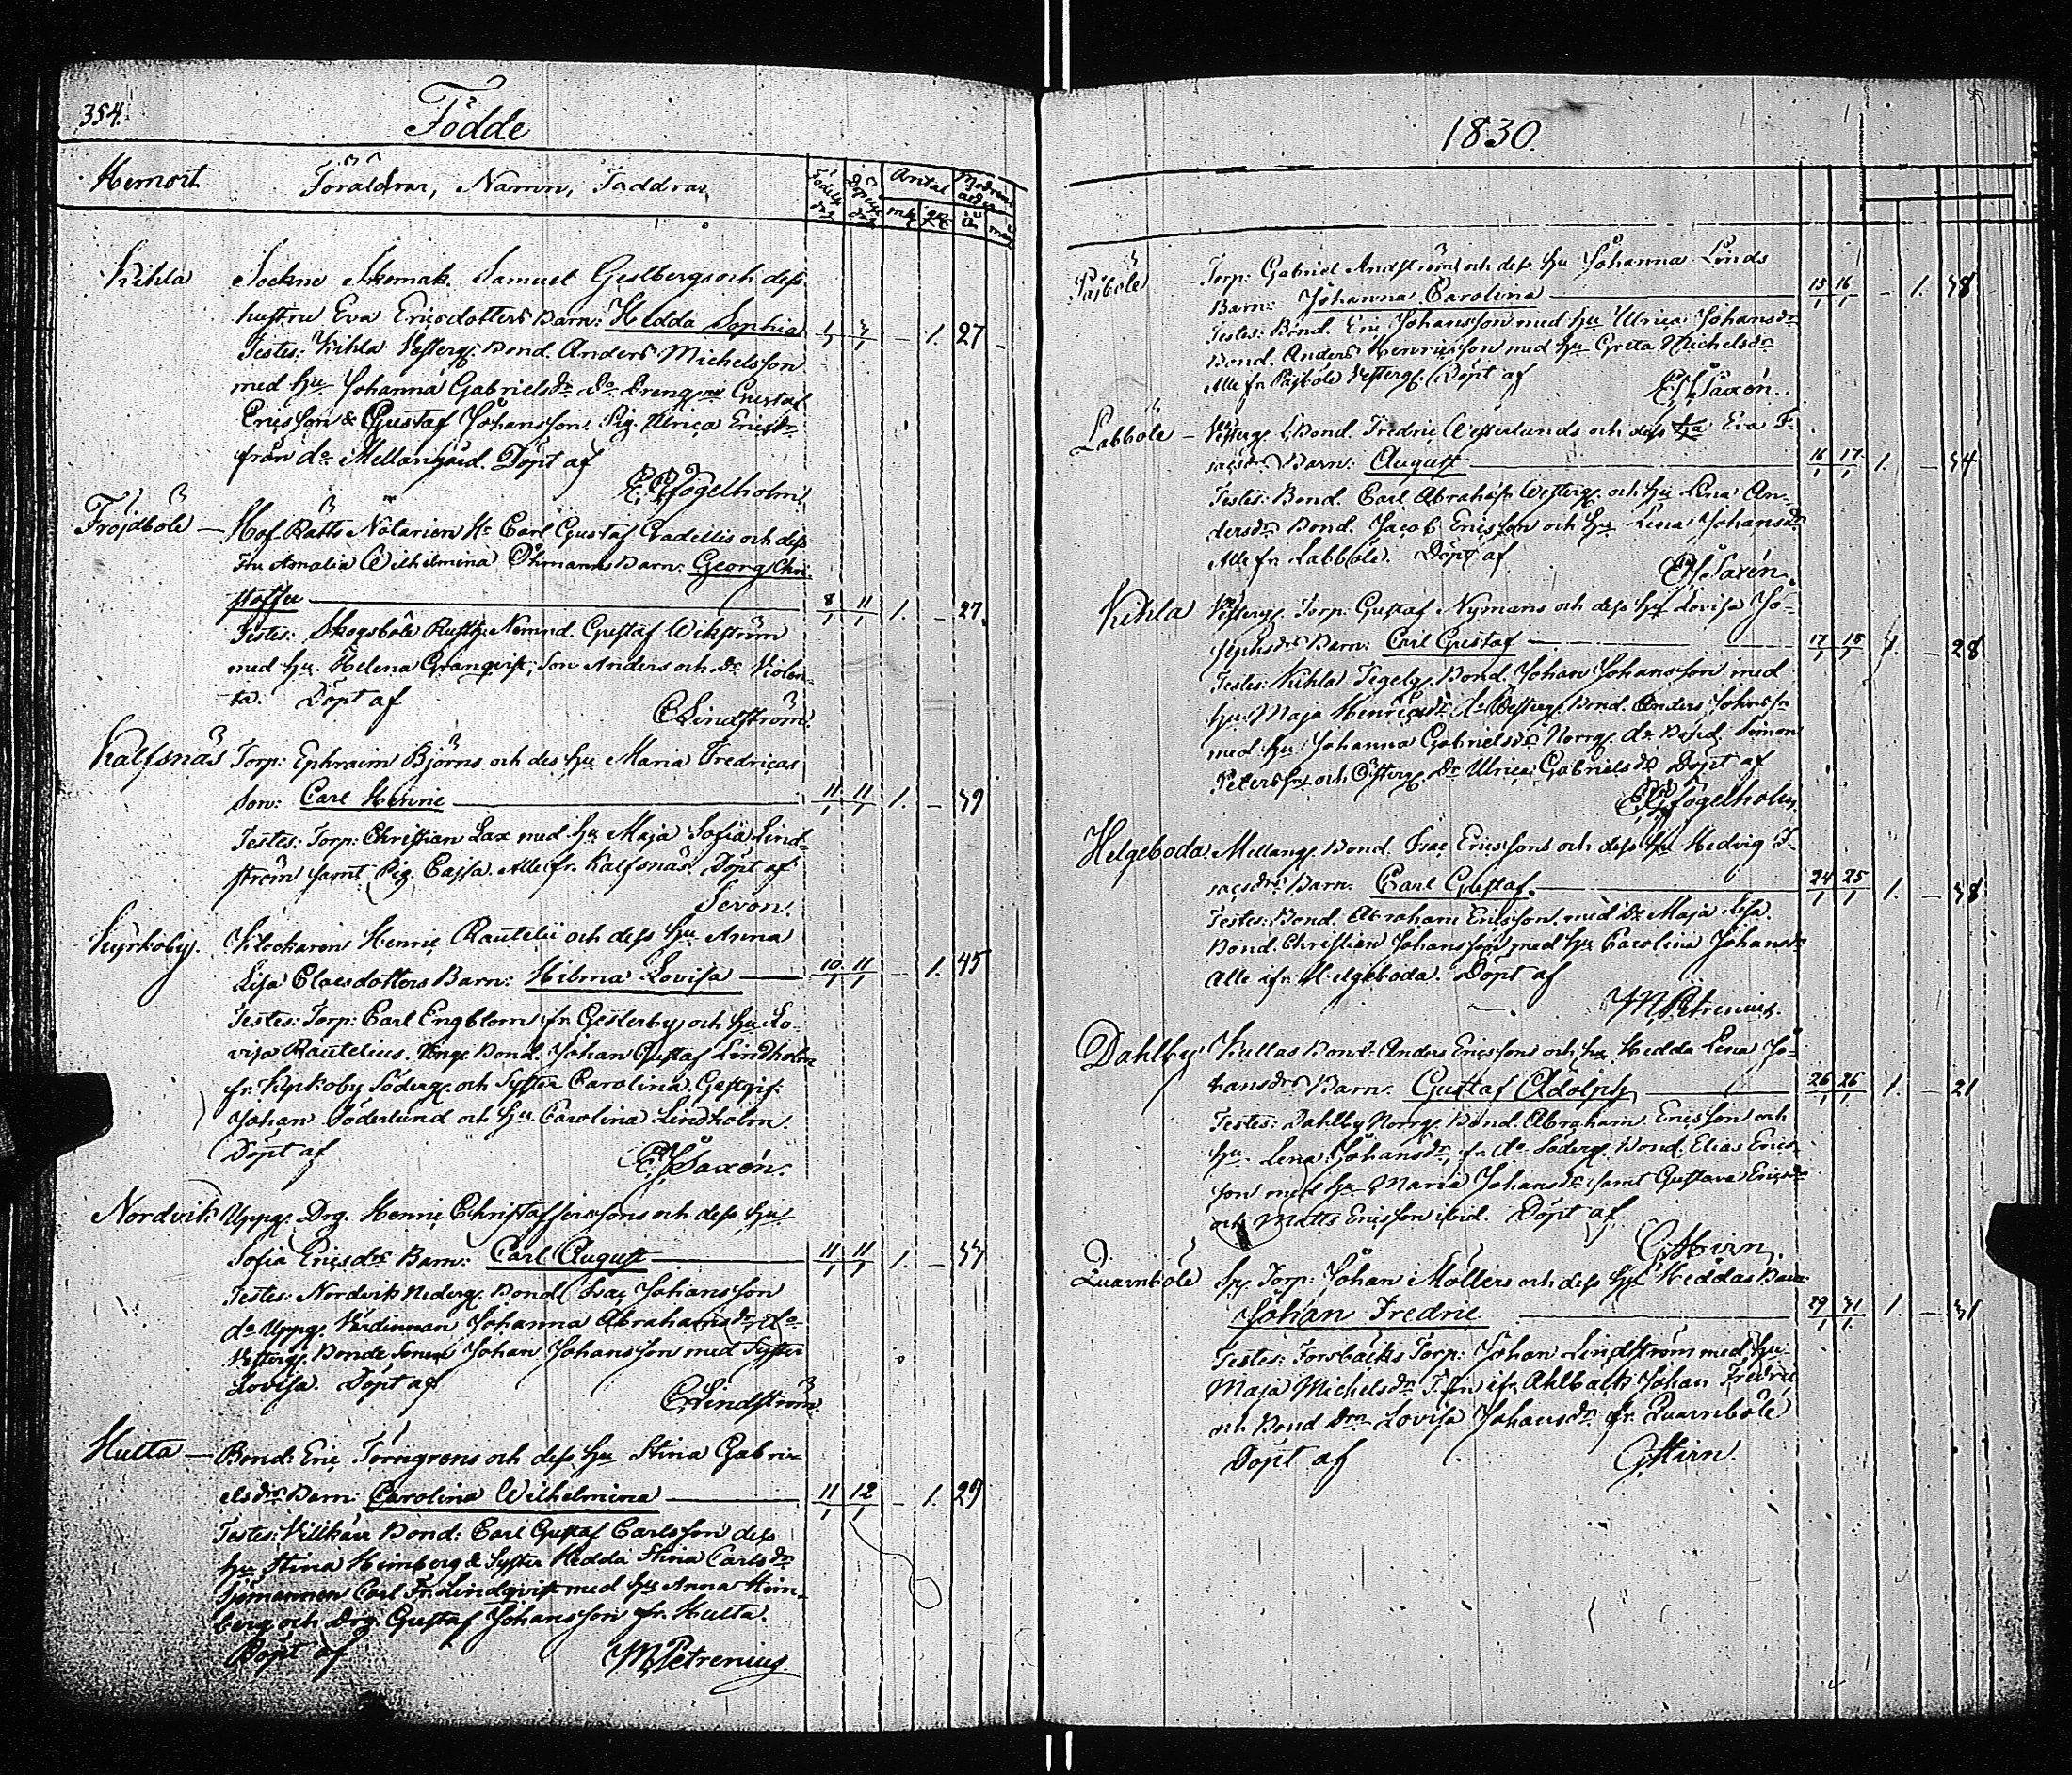 354.
Födde
Hemort. Föräldrar, Namn, Faddrar,
Födelse dag Döpelse dag Antal Modrens ålder
mk qk år mån
Kihla Sockne Skomak. Samuel Geslbergs och dess
hustru Eva Ericsdotters Barn: Hedda Sophia 1. 27 –
Testes: Kihla Westerg. Bond. Anders Michelsson
med Hu Johanna Gabrielsdr do Dreng. Gustaf
Ericsson & Gustaf Johansson, Pig. Ulrica Ericsdr
från do Mellangård. Döpt af
Fogelholm
Fröjdböle – Hof-Rätts Notarien Hr Carl Gustaf Cradellis och dess
Fru Amalia Wilhelmina Öhmans Barn: Georg Chri-
stoffer 8/1 11/1 1. – 27.
Testes: Skogsböle Rusth. Nemnd. Gustaf Wikström
med Hu. Helena Granqvist, Son Anders och Dr Violen-
ta. Döpt af
CLindström.
Kalfsnäs Torp: Ephraim Björns och des Hu Maria Fredricas
Son: Carl Henric 11/1 11/1 1. – 39
Testes: Torp: Christian Lax med Hu Maja Sofia Lind-
ström samt Pig. Cajsa. Alle fr. Kalfsnäs. Döpt af
Sevon.
Kyrkoby. Klockaren Henric Rautelii och dess Hu Anna
Lisa Claesdotters Barn: Hilma Lovisa 10/1 11/1 – 1. 45
Testes: Torp: Carl Engblom fr. Gesterby och Hu Lo-
visa Rautelius. Unge Bond. Johan Gustaf Lindholm
fr. Kyrkoby Söderg. och Syster Carolina. Gestgif.
Johan Söderlund och Hu. Carolina Lindholm.
Döpt af
Saxén.
Nordvik Uppg. Drg. Henric Christafferssons och dess Hu
Sofia Ericsdrs Barn: Carl August 11/1 11/1 1. – 33
Testes: Nordvik Nederg. Bond. Isac Johansson
do Uppg. Värdinnan Johanna Abrahamsdr, do
Westerg. Bonde Sonen Johan Johansson med Syster
Lovisa. Döpt af
CLindström.
Hulta – Bond: Eric Törngrens och dess Hu Stina Gabri-
elsdrs Barn: Carolina Wilhelmina 11/1 12/1 – 1. 29
Testes: Villkärr Bond: Carl Gustaf Carlsson dess
Hu Stina Heimberg & Syster Hedda Stina Carlsdr
Sjömannen Carl Fr. Lindqvist med Hu Anna Heim-
berg och Drg. Gustaf Johansson fr. Hulta.
Döpt af MPetrenius.
1830.
Pajböle Torp: Gabriel Andströms och dess Hu Johanna Linds
Barn: Johanna Carolina 15/1 16/1 – 1. 38
Testes: Bond. Eric Johansson med Hu Ulrica Johansdr
Bond. Anders Henricsson med Hu Greta Michelsdr
Alle fr. Pajböle Westerg. Döpt af
Saxén.
Labböle – Westerg. Bond. Fredric Westerlunds och dess Hu Eva I-
sacsdrs Barn: August 16/1 17/1 1. – 34
Testes: Bond. Carl Abrahss. Westerg. och Hu Lena An-
dersdr Bond. Jacob Ericsson och Hu Lena Johansdr
Alle fr. Labböle. Döpt af
Saxén.
Kihla Westerg. Torp: Gustaf Nymans och dess Hu Lovisa Jo-
sephsdrs Barn: Carl Gustaf 17/1 18/1 1 – 28
Testes: Kihla Tegelg. Bond. Johan Johansson med
Hu Maja Henricsdr do Westerg. Bond. Anders Johansson
med Hu Johanna Gabrielsdr Norrg. do Bond. Simon
Petersson och Österg. Dr Ulrica Gabrielsdr Döpt af
Fogelholm
Helgeboda Mellang. Bond. Isac Ericssons och dess Hu Hedvig I-
sacsdrs Barn: Carl Gustaf. 24/1 25/1 1. – 38
Testes: Bond. Abraham Ericsson med Dr Maja Lisa.
Bond. Christian Johansson med Hu Carolina Johansdr
Alle ifr. Helgeboda. Döpt af
MPetrenius.
Dahlby Kullas Bond. Anders Ericssons och Hu Hedda Lena Jo-
hansdrs Barn. Gustaf Adolph 26/1 26/1 1. – 21
Testes: Dahlby Norrg. Bond. Abraham Ericsson och
Hu Lena Johansdr, fr. do Söderg. Bond. Elias Erics-
son med Hu Maria Johansdr samt Gustava Ericsdr
och Matts Ericsson ibid. Döpt af
GHirn.
Quarnböle Torp: Johan Möllers och dess Hu Heddas Barn
Johan Fredric 29/1 31/1 1. – 31
Testes: Forsbäcks Torp: Johan Lindström med Hu
Maja Michelsdr ifr. Ahlbäck Johan Fredric
och Bond Drn Lovisa Johansdr fr. Quarnböle
Döpt af GHirn.